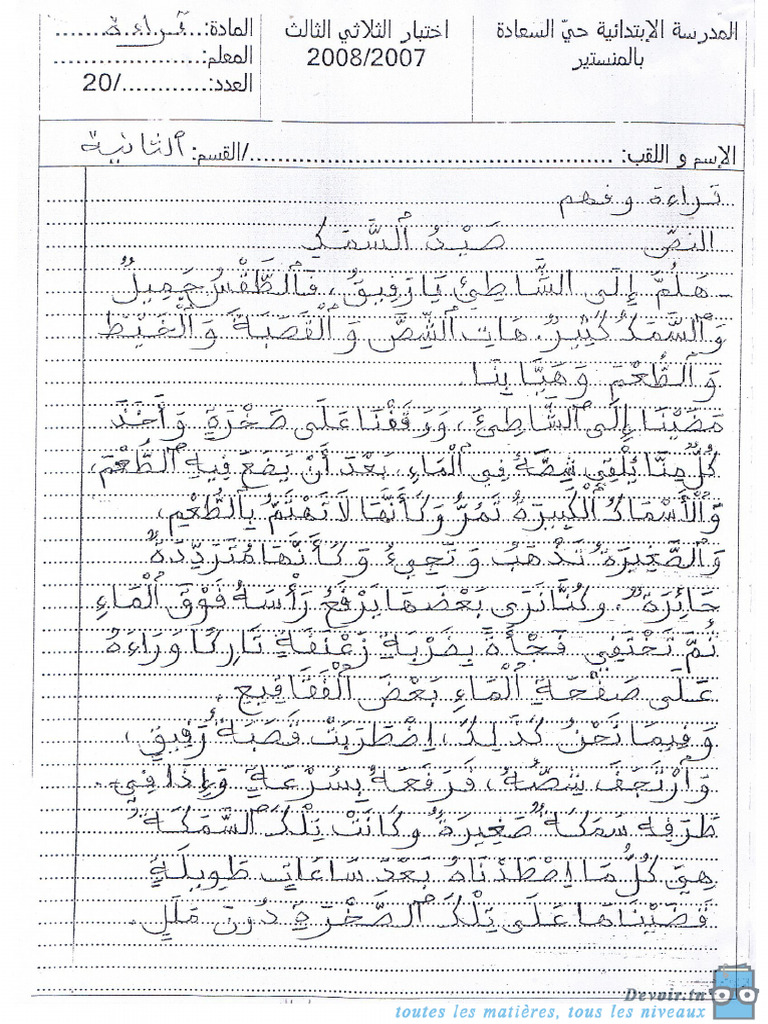 المدرسة الإبتدائية حيّ السعادة
بالمنستير
اختبار الثلاثي الثالث
2008/2007
المادة:..قراءة........
المعلم:......................
العدد:............/20
الإسم و اللقب: ..................................................../القسم: الثانية
قراءة وفهم
النصّ صَيْدُ ٱلسَّمَكِ
هَلُمَّ إِلَى الشَّاطِئِ يَا رَفِيقُ، فَٱلطَّقْسُ جَمِيلٌ
وَٱلسَّمَكُ كَثِيرٌ. هَاتِ ٱلشِّصَّ وَٱلْقَصَبَةَ وَٱلْخَيْطَ
وَٱلطُّعْمَ وَهَيَّا بِنَا.
مَضَيْنَا إِلَى ٱلشَّاطِئِ، وَوَقَفْنَا عَلَى صَخْرَةٍ وَأَخَذَ
كُلٌّ مِنَّا يُلْقِي شِصَّهُ فِي ٱلْمَاءِ، بَعْدَ أَنْ يَضَعَ فِيهِ ٱلطُّعْمَ،
وَٱلْأَسْمَاكُ ٱلْكَبِيرَةُ تَمُرُّ وَكَأَنَّهَا لَا تَهْتَمُّ بِٱلطُّعْمِ،
وَٱلصَّغِيرَةُ تَذْهَبُ وَتَجِيءُ وَكَأَنَّهَا مُتَرَدِّدَةٌ
حَائِرَةٌ، وكُنَّا نَرَى بَعْضَهَا يَرْفَعُ رَأْسَهُ فَوْقَ ٱلْمَاءِ
ثُمَّ تَخْتَفِي فَجْأَةً بِضَرْبَةِ زَعْنَفَةٍ تَارِكًا وَرَاءَهُ
عَلَى صَفْحَةِ ٱلْمَاءِ بَعْضَ ٱلْفَقَاقِيعِ.
وَفِيمَا نَحْنُ كَذَلِكَ، اِضْطَرَبَتْ قَصَبَةُ رَفِيقِي،
وَٱرْتَجَفَ شِصُّهُ، فَرَفَعَهُ بِسُرْعَةٍ وَإِذَا فِي
طَرَفِهِ سَمَكَةٌ صَغِيرَةٌ وكَانَتْ تِلْكَ ٱلسَّمَكَةُ
هِيَ كُلُّ مَا اِصْطَدْنَاهُ بَعْدَ سَاعَاتٍ طَوِيلَةٍ
قَضَيْنَاهَا عَلَى تِلْكَ ٱلصَّخْرَةِ دُونَ مَلَلٍ.
Devoir.tn
toutes les matières, tous les niveaux